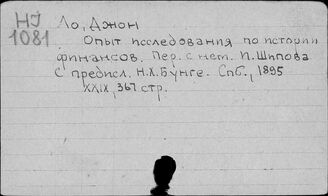 НЈ
1081
Ло, Джон
Опыт исследования по истории
финансов. Пер. с нем. П. Шипова
С предисл. Н.Х. Бунге. Спб., 1895
XXIX, 367 стр.